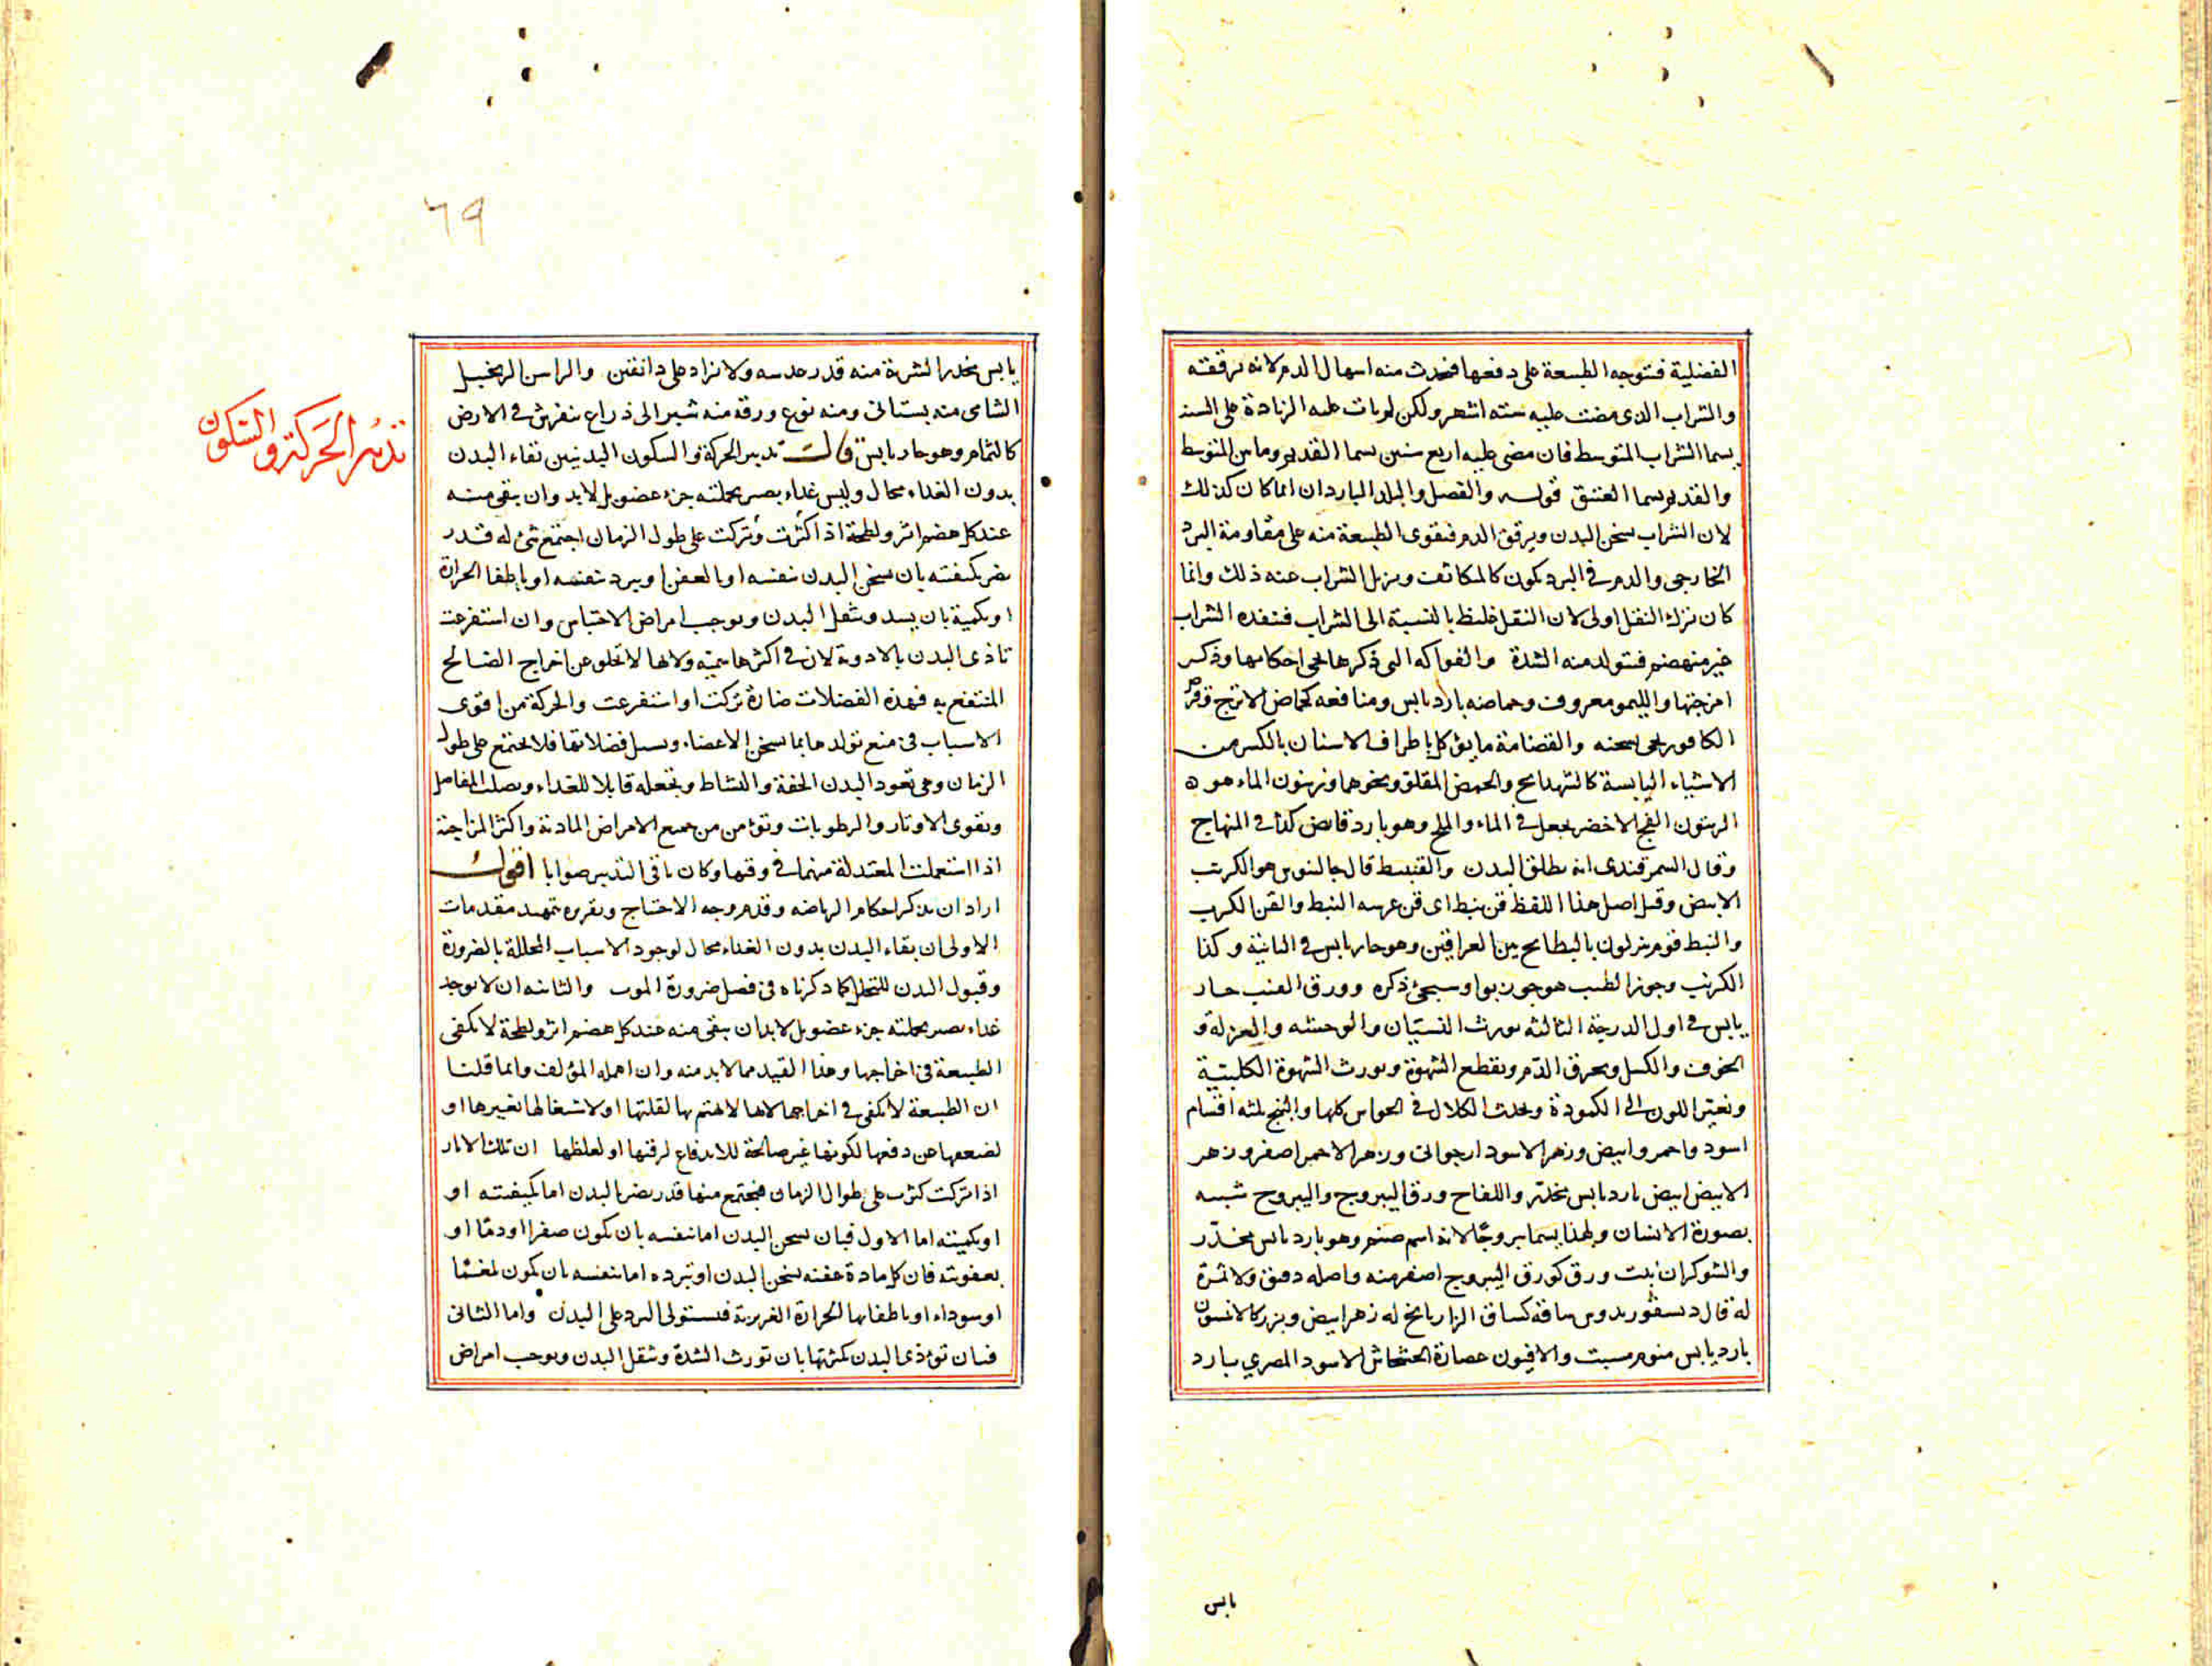 الفضلية فتتوجه الطبيعة على دفعها فتحدث منه اسهال الدم لانه يرققه
والشراب الذى مضت عليه سته اشهر ولكن لو بات عليه الزيادة على السنة
يسما الشراب المتوسط فان مضى عليه اربع سنين يسما القديم وما بين المتوسط
والقديم يسما العتيق قوله والفصل والبلد الباردان انما كان كذلك
لان الشراب يسخن البدن ويرقق الدم فتقوى الطبيعة منه على مقاومة البرد
الخارجى والدم فى البرد يكون كالمتكاثف ويزيل الشراب عنه ذلك وانما
كان ترك النقل اولى لان النقل غليظ بالنسبة الى الشراب فتنفذه الشراب
غير منهضم فتتولد منه السدة والفواكه التى ذكرها يجى احكامها وذكر
امزجتها والليمو معروف وحماضه بارد يابس ومنافعه كحماض الاترج وقرص
الكافور يجى نسخته والقضامة ما يؤكل باطراف الاسنان بالكسر من
الاشياء اليابسة كالشهدانج والحمص المقلو ونحوهما وزيتون الماء هو
الزيتون الفج الاخضر يجعل فى الماء والملح وهو بارد قابض كذا فى المنهاج
وقال السمرقندى انه يطلق البدن والقنبيط قال جالنوس هو الكرنب
الابيض وقيل اصل هذا اللفظ قن نبط اى قن عربيه النبط والقن الكرنب
والنبط قوم ينزلون بالبطايح بين العراقين وهو حار يابس فى الثانية وكذا
الكرنب وجوز الطيب هو جوز بوا وسيجئ ذكره وورق العنب حار
يابس فى اول الدرجة الثالثه يورث النسيان والوحشه والعزلة و
الخوف والكسل ويحرق الدم ويقطع الشهوة ويورث الشهوة الكلبية
ويغير اللون الى الكمودة ويحدث الكلال فى الحواس كلها والبنج ثلثه اقسام
اسود واحمر وابيض وزهر الاسود ارجوانى وزهر الاحمر اصفر وزهر
الابيض ابيض بارد يابس مخدر واللفاح ورق اليبروج واليبروج شبيه
بصورة الانسان ولهذا يسما يبروجا لانه اسم صنم وهو بارد يابس مخدر
والشوكران نبت ورقه كورق اليبروج اصفر منه واصله دقيق ولا ثمرة
له قال دسقوريدوس ساقه كساق الرازيانج له زهر ابيض وبزر كالانيسون
بارد يابس منوم مسبت والافيون عصارة الخشخاش الاسود المصري بارد
يابس
٦٩
يابس مخدر الشربة منه قدر عدسه ولا يزاد على دانقين والراسن الزنجبيل
الشامى منه بستانى ومنه نوع ورقه منه شبر الى ذراع ينفرش فى الارض
كالتمام وهو حار يابس قالت تدبير الحركة والسكون البدنيين بقاء البدن
بدون الغذاء محال وليس غذاء يصير بجملته جزء عضو بل لا بد وان يبقى منه
عند كل هضم اثر ولطخة اذا كثرت وتركت على طول الزمان اجتمع شئ له قدر
يضر بكيفيته بان يسخن البدن بنفسه او بالعفن او يبرد بنفسه او باطفا الحرارة
او بكمية بان يسد ويثقل البدن ويوجب امراض الاحتباس وان استفرغت
تاذى البدن بالادوية لان فى اكثرها سمية ولانها لا تخلو عن اخراج الصالح
المنتفع به فهذه الفضلات ضارة تركت او استفرغت والحركة من اقوى
الاسباب فى منع تولدها بما يسخن الاعضاء ويسيل فضلاتها فلا يجتمع على طول
الزمان وهى تعود البدن الخفة والنشاط وتجعله قابلا للغذاء ويصلب المفاصل
ويقوى الاوتار والرطوبات وتؤمن من جميع الامراض المادية واكثر المزاجية
اذا استعملت المعتدلة منها فى وقتها وكان باقى التدبير صوابا اقول
اراد ان يذكر احكام الرياضه وقدم وجه الاحتياج وتقريره بتمهيد مقدمات
الاولى ان بقاء البدن بدون الغذاء محال لوجود الاسباب المحللة بالضرورة
وقبول البدن للتحلل كما ذكرناه فى فصل ضرورة الموت والثانيه ان لا يوجد
غذاء يصير بجملته جزء عضو بل لا بد ان يبقى منه عند كل هضم اثر ولطخة لا تكفى
الطبيعة فى اخراجها وهذا القيد مما لا بد منه وان اهمله المؤلف وانما قلنا
ان الطبيعة لا تكفى فى اخراجها لانها لا تهتم بها لقلتها او لاشتغالها بغيرها او
لضعفها عن دفعها لكونها غير صالحة للاندفاع لرقتها او لغلظها ان تلك الاثار
اذا تركت كثرت على طوال الزمان فيجتمع منها قدر يضر البدن اما بكيفيته او
او بكميته اما الاول فبان يسخن البدن اما بنفسه بان يكون صفرا او دما او
بعفونته فان كل مادة عفنه يسخن البدن او تبرده اما بنفسه بان يكون بلغما
او سوداء او باطفائها الحرارة الغريزية فيستولى البرد على البدن واما الثانى
فبان تؤذى البدن بكثرتها بان تورث السدة وتثقل البدن ويوجب امراض
تدبير الحركة والسكون